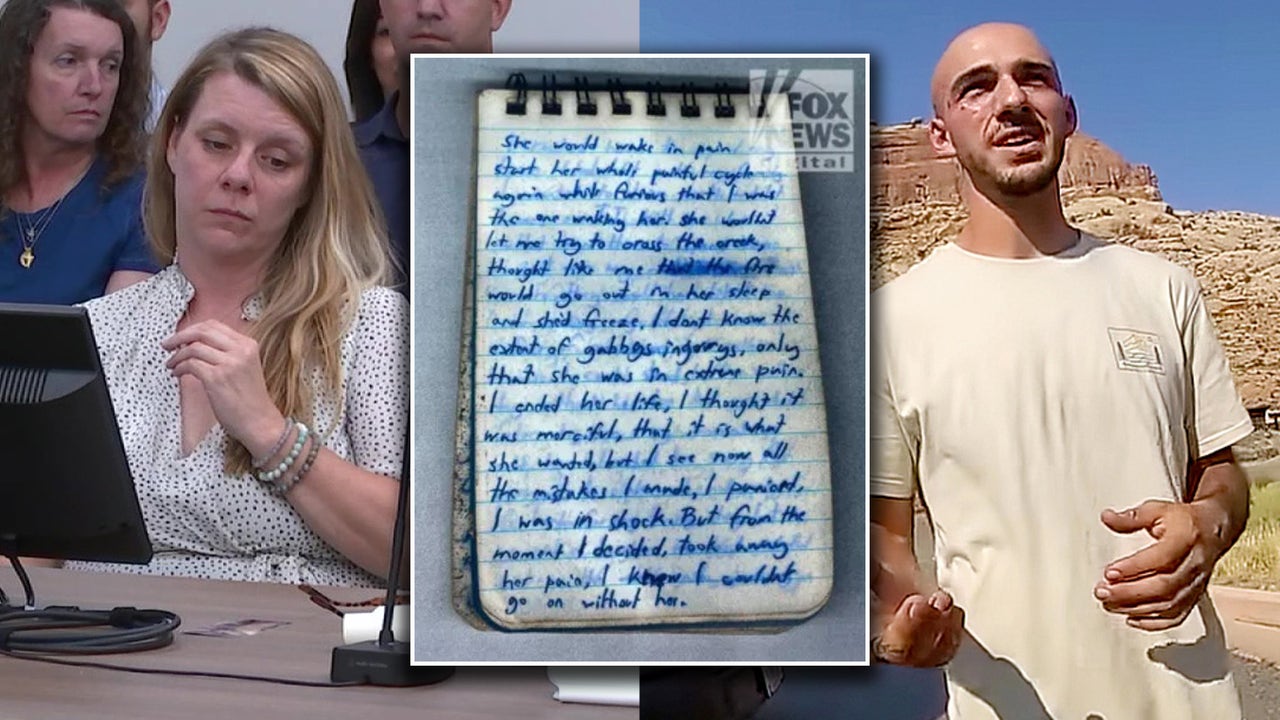 FOX
NEWS
Digital
She would wake in pain
start her whole painful cycle
again while furious that I was
the one waking her. she wouldnt
let me try to cross the creek,
thought like me that the fire
would go out in her sleep
and she'd freeze, I dont know the
extent of gabbys ingourys, only
that she was in extreme pain.
I ended her life, I thought it
was merciful, that it is what
she wanted, but I see now all
the mistakes I made, I panicked,
I was in shock. But from the
moment I decided, took away
her pain, I knew I couldnt
go on without her.